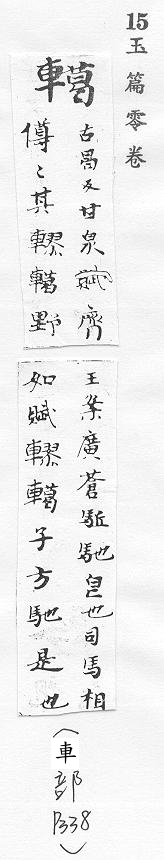 15 玉篇零卷
轕
古曷反甘泉賦齊
僔〻其轇轕野
王案廣蒼駈馳皃也司馬相
如賦轇轕子方馳是也
(車部P338)